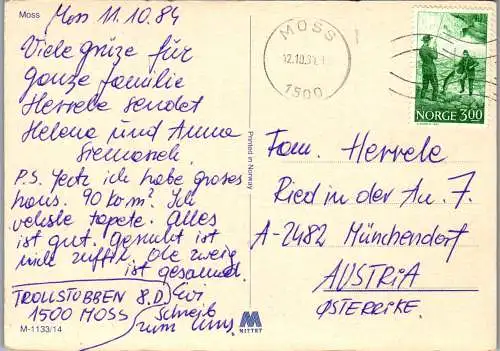 Moss
Moss 11.10.84
Viele grüze für
Ganze familie
Herrele sendet
Helena und Anna
P.S. Jectz ich habe groses
haus. 90 kom². Ich
tapete. Alles
ist gut. ist
nich Ole zweig
ist gesaund.
TROLLSTUBBEN 8.D
1500 MOSS
Schreib
zum uns.
M-1133/14
Printed in Norway
MITTET
MOSS
12.10.84
1500
NORGE 3.00
Fam. Herrele
Ried in der Au. 7.
A-2482 Münchendorf
AUSTRIA
ØSTERRIKE.